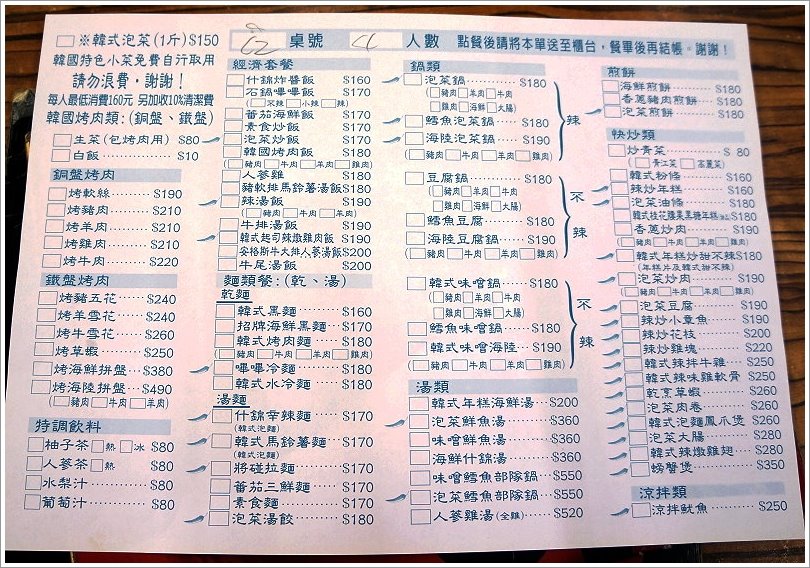 ※韓式泡菜(1斤)$150
62 桌號 4 人數 點餐後請將本單送至櫃台，餐畢後再結帳。謝謝！
韓國特色小菜免費自行取用
請勿浪費，謝謝！
每人最低消費160元 另加收10%清潔費
韓國烤肉類:(銅盤、鐵盤)
生菜(包烤肉用) $80
白飯 $10
銅盤烤肉
烤軟絲 $190
烤豬肉 $210
烤羊肉 $210
烤雞肉 $210
烤牛肉 $220
鐵盤烤肉
烤豬五花 $240
烤羊雪花 $240
烤牛雪花 $260
烤草蝦 $250
烤海鮮拼盤 $380
烤海陸拼盤 $490
(豬肉 牛肉 羊肉)
特調飲料
柚子茶 熱 冰 $80
人蔘茶 熱 $80
水梨汁 $80
葡萄汁 $80
經濟套餐
什錦炸醬飯 $160
石鍋嗶嗶飯 $170
(不辣 小辣 辣)
番茄海鮮飯 $170
素食炒飯 $170
泡菜炒飯 $170
韓國烤肉飯 $180
(豬肉 牛肉 羊肉 雞肉)
人蔘雞 $180
豬軟排馬鈴薯湯飯 $180
辣湯飯 $190
(豬肉 牛肉 羊肉)
牛排湯飯 $190
韓式起司辣燉雞肉飯 $190
安格斯牛大排人蔘湯飯 $200
牛尾湯飯 $200
麵類餐:(乾、湯)
乾麵
韓式黑麵 $160
招牌海鮮黑麵 $170
韓式烤肉麵 $180
(豬肉 牛肉 羊肉 雞肉)
嗶嗶冷麵 $180
韓式水冷麵 $180
湯麵
什錦辛辣麵 $170
(韓式泡麵)
韓式馬鈴薯麵 $170
(韓式泡麵)
將碰拉麵 $170
番茄三鮮麵 $170
素食麵 $170
泡菜湯餃 $180
鍋類
泡菜鍋 $180
(豬肉 羊肉 牛肉
雞肉 海鮮 大腸)
鱈魚泡菜鍋 $180
海陸泡菜鍋 $190
(豬肉 牛肉 羊肉 雞肉)
辣
豆腐鍋 $180
(豬肉 羊肉 牛肉
雞肉 海鮮 大腸)
鱈魚豆腐 $180
海陸豆腐鍋 $190
(豬肉 牛肉 羊肉 雞肉)
不辣
韓式味噌鍋 $180
(豬肉 羊肉 牛肉
雞肉 海鮮 大腸)
鱈魚味噌鍋 $180
韓式味噌海陸 $190
(豬肉 牛肉 羊肉 雞肉)
不辣
湯類
韓式年糕海鮮湯 $200
泡菜鮮魚湯 $360
味噌鮮魚湯 $360
海鮮什錦湯 $360
味噌鱈魚部隊鍋 $550
泡菜鱈魚部隊鍋 $550
人蔘雞湯(全雞) $520
煎餅
海鮮煎餅 $180
香蔥豬肉煎餅 $180
泡菜煎餅 $180
快炒類
炒青菜 $80
(青江菜 高麗菜)
韓式粉條 $160
辣炒年糕 $160
泡菜油條 $180
韓式桂花雞果黑糖年糕 $180
香蔥炒肉 $190
(豬肉 牛肉 羊肉)
韓式年糕炒甜不辣 $180
(年糕片及韓式甜不辣)
泡菜炒肉 $190
(豬肉 牛肉 羊肉)
泡菜豆腐 $190
辣炒小章魚 $190
辣炒花枝 $200
辣炒雞塊 $220
韓式辣拌牛雜 $250
韓式辣味雞軟骨 $250
乾烹草蝦 $260
泡菜肉卷 $260
韓式泡麵鳳爪煲 $260
泡菜大腸 $280
韓式辣燉雞翅 $280
螃蟹煲 $350
涼拌類
涼拌魷魚 $250